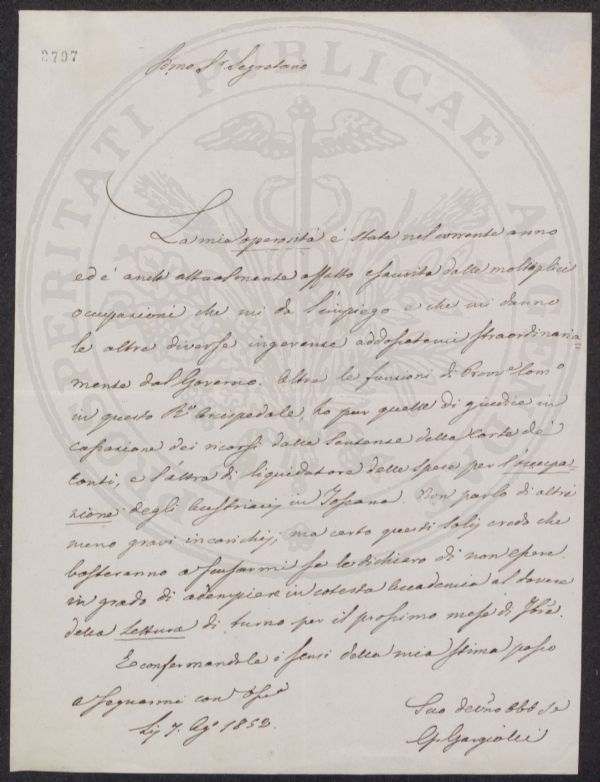 2797
Sig. Segretario
PROSPERITATI PUBLICAE AUGENDAE
La mia operosità è stata nel corrente anno
ed è anch' attualmente affatto esaurita dalle molteplici
occupazioni che mi dà l'impiego e che mi danno
le altre diverse ingerenze addossatemi straordinaria
mente dal Governo. Oltre le funzioni di
in questo R.o Arcispedale, ho pur quelle di giudice in
cassazione dei ricorsi dalle sentenze della Corte de'
Conti, e l'altra di liquidatore delle spese per l'occupa-
zione degli Austriacij in Toscana. Non parlo di altri
meno gravi incarichij, ma certo questi solij credo che
basteranno a scusarmi se le dichiaro di non essere
in grado di adempiere in cotesta Accademia al dovere
della Lettura di turno per il prossimo mese di 7bre.
E confermandole i sensi della mia stima passo
a segnarmi con
Lij 7. Ag.o 1852.
Suo dev.mo obb. Se
G. Gargiolli